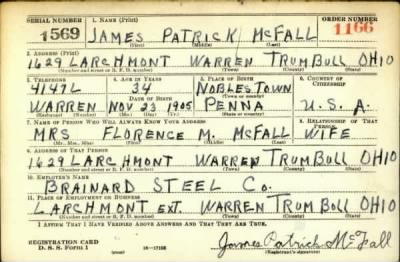 SERIAL NUMBER 1. NAME (Print) ORDER NUMBER
1569 JAMES PATRICK McFALL 1166
(First) (Middle) (Last)
2. ADDRESS (Print)
1629 LARCHMONT WARREN TRUMBULL OHIO
(Number and street or R. F. D. number) (Town) (County) (State)
3. TELEPHONE 4. AGE IN YEARS 5. PLACE OF BIRTH 6. COUNTRY OF CITIZENSHIP
4147L 34 NOBLESTOWN
DATE OF BIRTH (Town or county)
WARREN NOV 23 1905 PENNA U.S.A.
(Exchange) (Number) (Mo.) (Day) (Yr.) (State or country)
7. NAME OF PERSON WHO WILL ALWAYS KNOW YOUR ADDRESS 8. RELATIONSHIP OF THAT PERSON
MRS FLORENCE M. McFALL WIFE
(Mr., Mrs., Miss) (First) (Middle) (Last)
9. ADDRESS OF THAT PERSON
1629 LARCHMONT WARREN TRUMBULL OHIO
(Number and street or R. F. D. number) (Town) (County) (State)
10. EMPLOYER'S NAME
BRAINARD STEEL Co.
11. PLACE OF EMPLOYMENT OR BUSINESS
LARCHMONT EXT. WARREN TRUMBULL OHIO
(Number and street or R. F. D. number) (Town) (County) (State)
I AFFIRM THAT I HAVE VERIFIED ABOVE ANSWERS AND THAT THEY ARE TRUE.
REGISTRATION CARD
D. S. S. Form 1 16—17105 James Patrick McFall
(Registrant's signature)